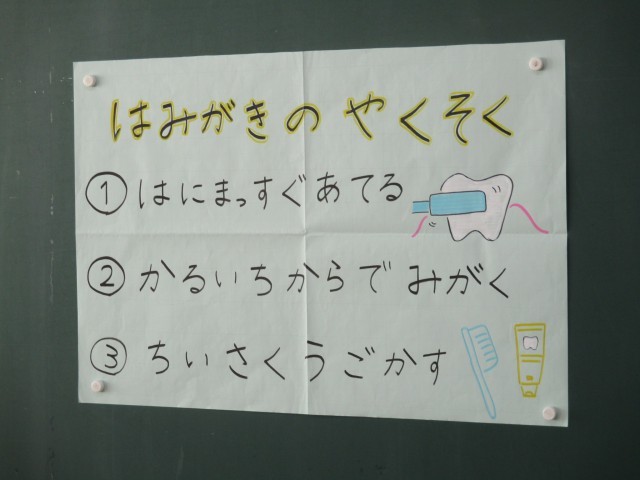 はみがきの やくそく
① はにまっすぐあてる
② かるいちからで みがく
③ ちいさくうごかす